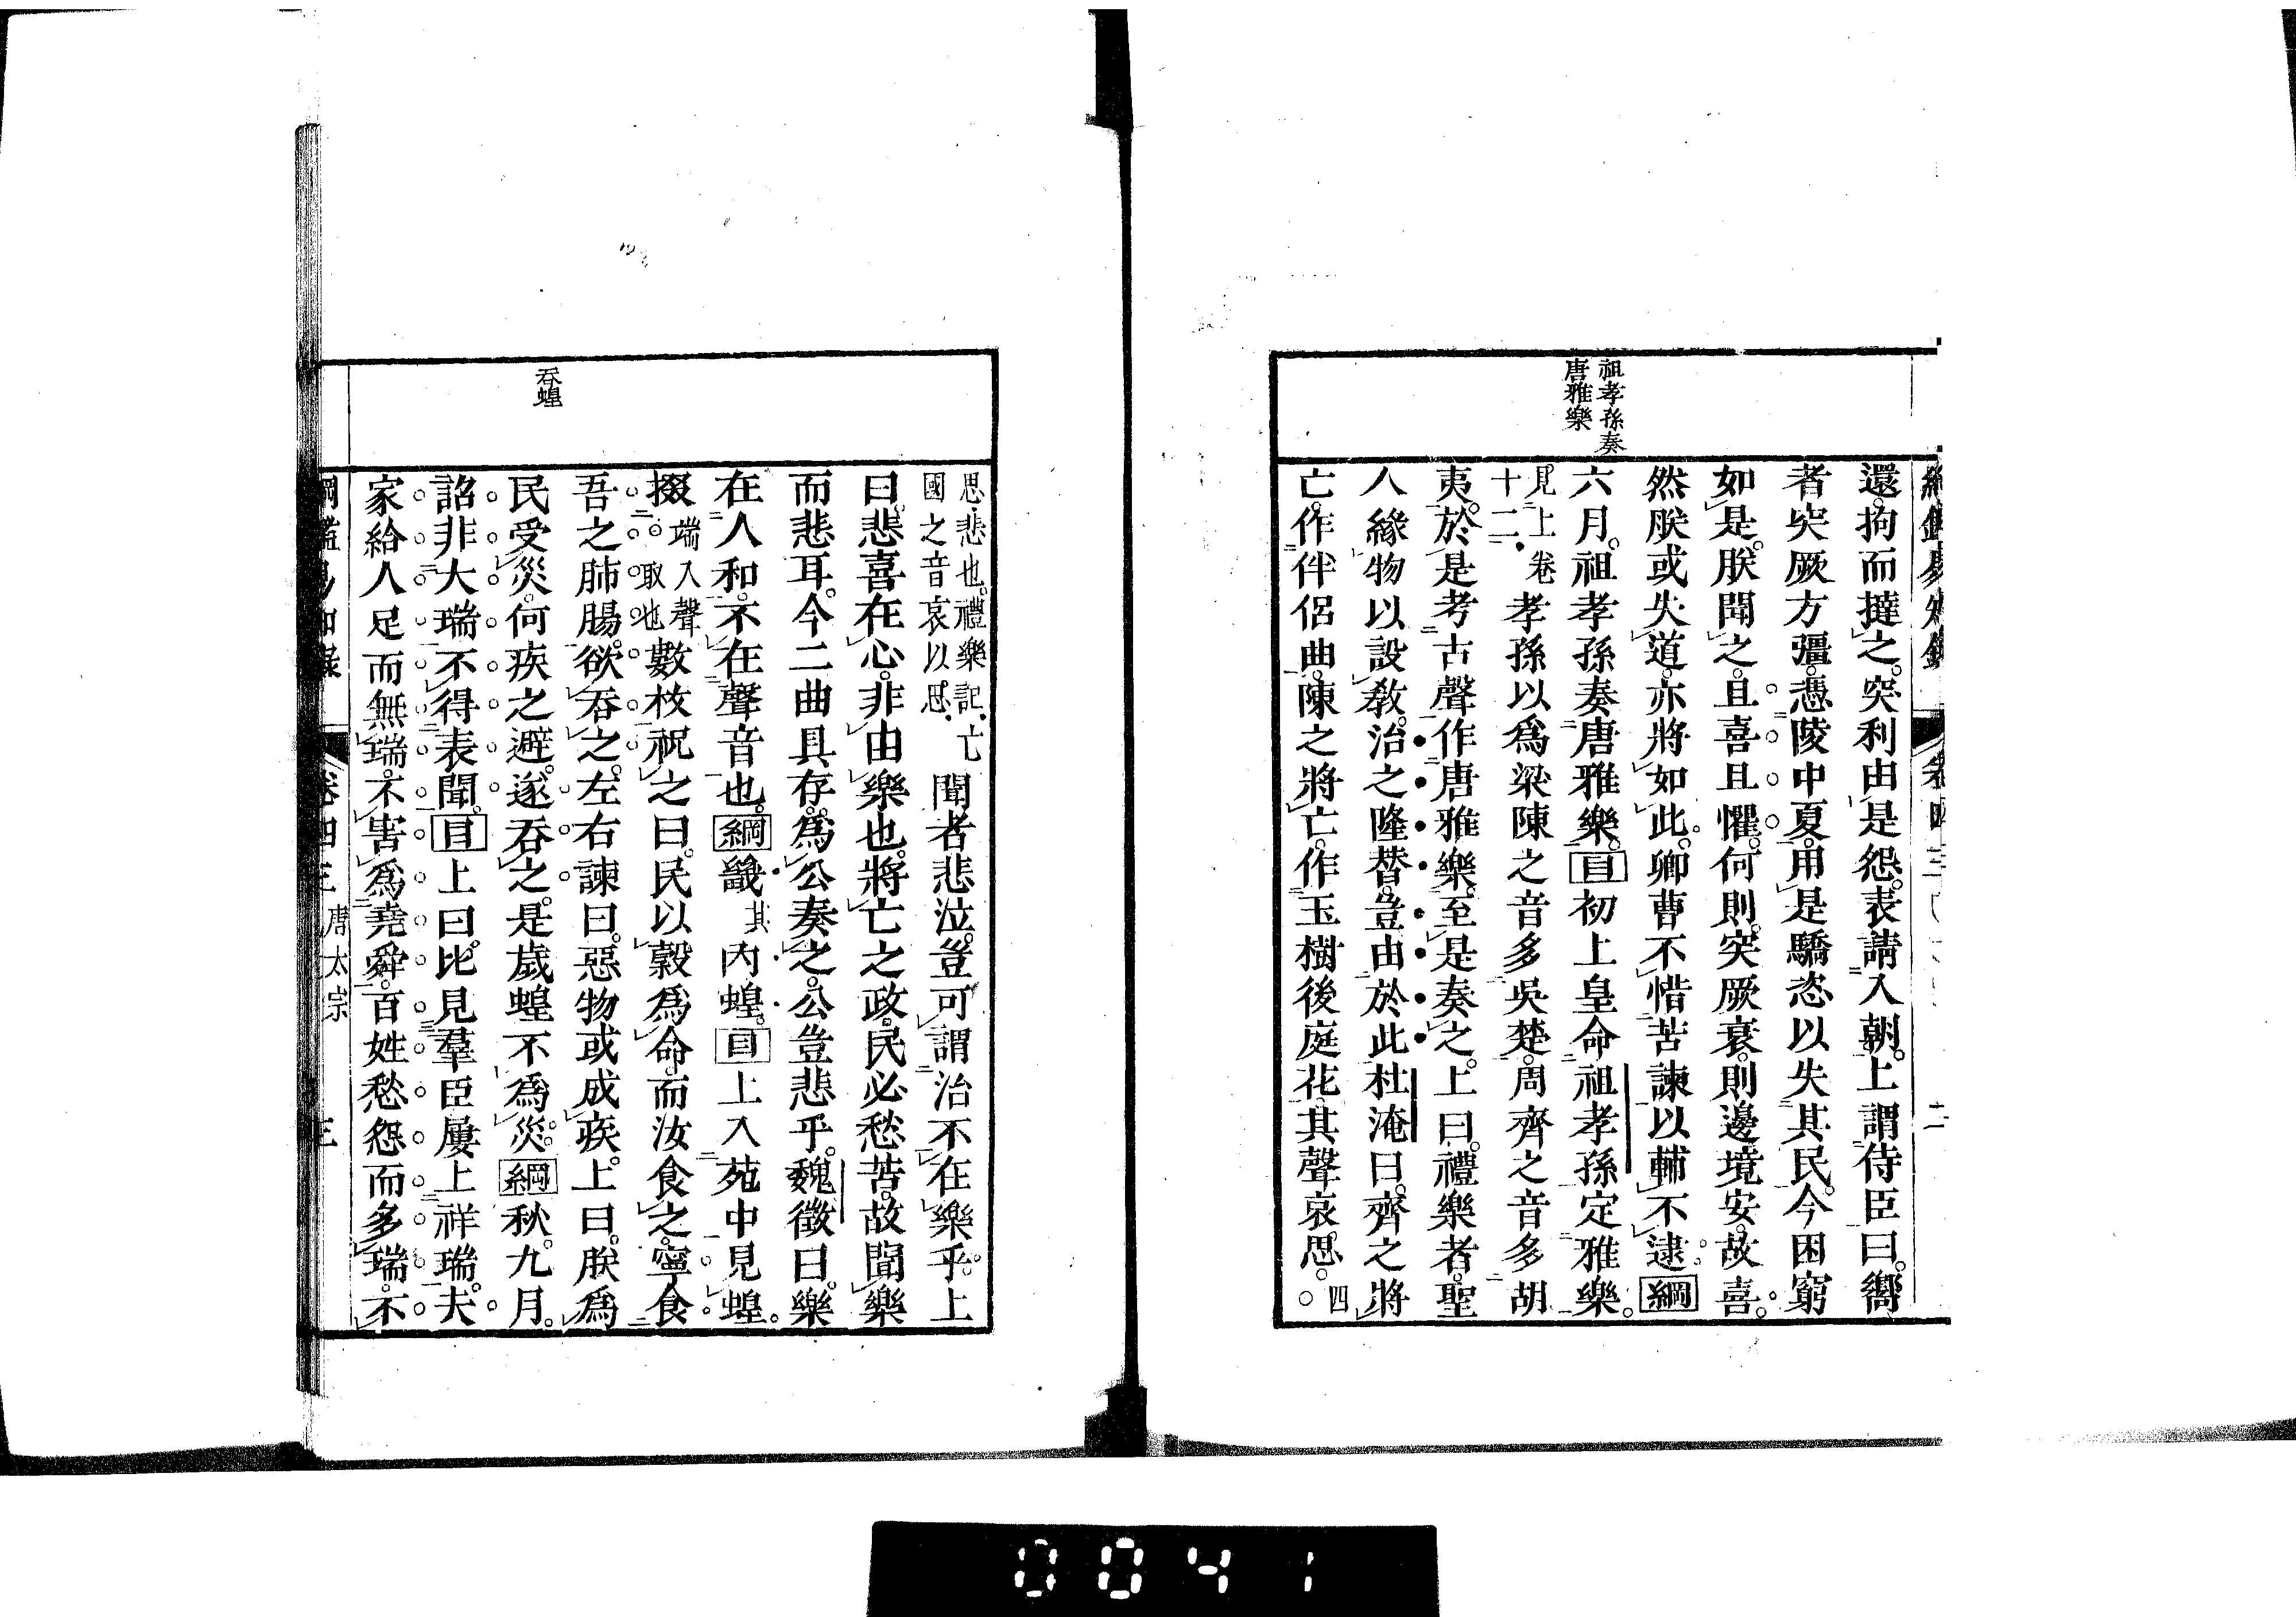 祖孝孫奏
唐雅樂
還。拘而撻之。突利由是怨。表請入朝。上謂侍臣曰。嚮
者突厥方彊。憑陵中夏。用是驕恣以失其民。今困窮
如是。朕聞之。且喜且懼。何則。突厥衰。則邊境安。故喜。
然朕或失道。亦將如此。卿曹不惜苦諫以輔不逮。綱
六月。祖孝孫奏唐雅樂。目初上皇命祖孝孫定雅樂。
見上卷
十二
孝孫以爲梁陳之音多吳楚。周齊之音多胡
夷。於是考古聲作唐雅樂。至是奏之。上曰。禮樂者。聖
人緣物以設敎。治之隆替。豈由於此。杜淹曰。齊之將
亡。作伴侶曲。陳之將亡。作玉樹後庭花。其聲哀思。
四
思、悲也。禮樂記、亡
國之音哀以思、
聞者悲泣。豈可謂治不在樂乎。上
曰。悲喜在心。非由樂也。將亡之政。民必愁苦。故聞樂
而悲耳。今二曲具存。爲公奏之。公豈悲乎。魏徵曰。樂
在人和。不在聲音也。綱畿內蝗。目上入苑中見蝗。
其
掇
端入聲
取也
數枚祝之曰。民以穀爲命。而汝食之。寧食
吾之肺腸。欲吞之。左右諫曰。惡物或成疾。上曰。朕爲
民受災。何疾之避。遂吞之。是歲蝗不爲災。綱秋。九月。
詔非大瑞不得表聞。目上曰。比見羣臣屢上祥瑞。夫
家給人足而無瑞。不害爲堯舜。百姓愁怨而多瑞。不
吞蝗
綱鑑易知錄 卷四三 唐太宗 三
0041